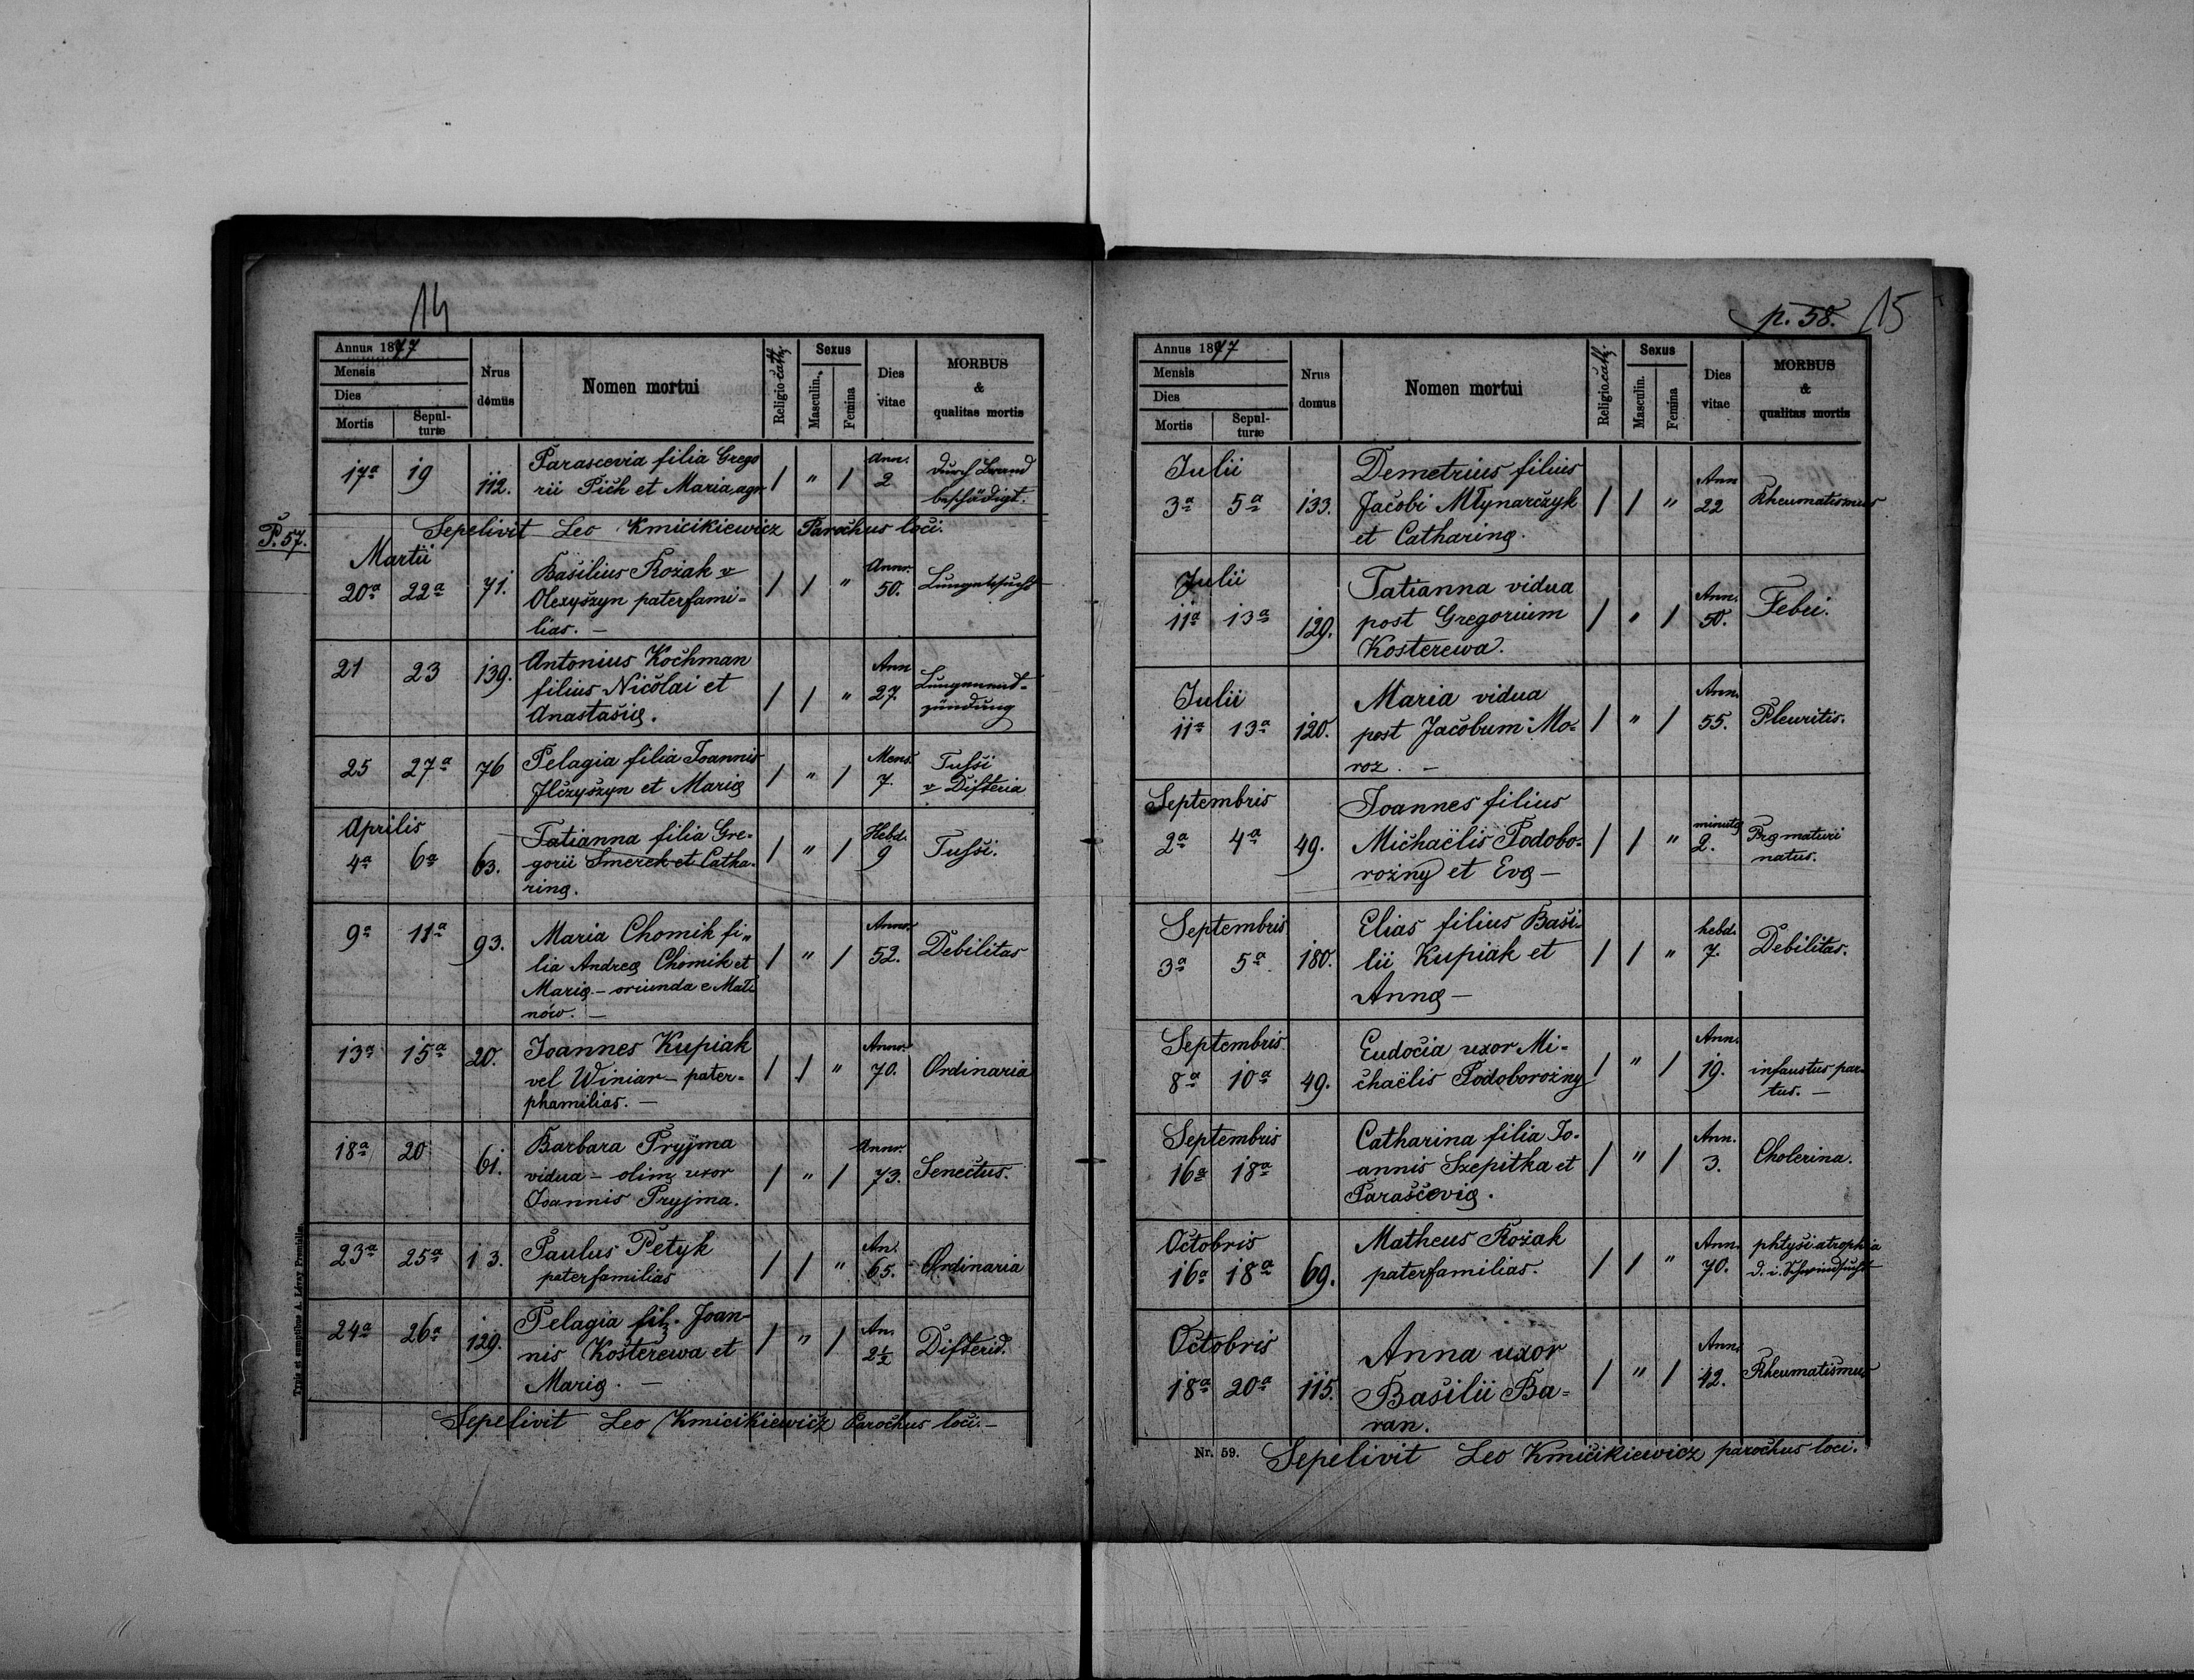 14
Annus 1877
Mensis
Dies
Mortis
Sepul-
turæ
Nrus
domus
Nomen mortui
Religio cath.
Sexus
Masculin.
Femina
Dies
vitae
MORBUS
&
qualitas mortis
17ª 19 112. Parascevia filia Grego
rii Pich et Maria, agr. / " / Ann. 2 durch Brand
beschädigt.
Sepelivit Leo Kmicikiewicz Parochus loci.
P. 57.
Martii
20ª 22ª 71. Basilius Kozak v
Olexyszyn paterfami=
lias. — / / " Annor. 50. Lungensucht
21 23 139. Antonius Kochman
filius Nicolai et
Anastasię. / / " Ann 27. Lungenent=
zündung
25 27ª 76 Pelagia filia Joannis
Ilczyszyn et Marię / " / Mens. 7. Tussi
v Difteria
Aprilis
4ª 6ª 63. Tatianna filia Gre=
gorii Smerek et Catha=
rinę. / " / Hebd. 9 Tussi.
9ª 11ª 93. Maria Chomik fi„
lia Andreę Chomik et
Marię — oriunda e Mali
nów. — / " / Annor. 52. Debilitas
13ª 15ª 20. Joannes Kupiak
vel Winiar — pater=
phamilias. — / / " Annor. 70. Ordinaria
18ª 20 61. Barbara Pryjma
vidua — olim uxor
Joannis Pryjma. / " / Annor. 73. Senectus.
23ª 25ª 13. Paulus Petyk
paterfamilias / / " An. 65. Ordinaria
24ª 26ª 129. Pelagia fil. Joan-
nis Kosterewa et
Marię. — / " / An. 2½ Difterid.
Sepelivit Leo Kmicikiewicz Parochus loci. —
Typis et sumptibus A. Leray Premisliæ.
p. 58. 15
Annus 1877
Mensis
Dies
Mortis
Sepul-
turæ
Nrus
domus
Nomen mortui
Religio cath.
Sexus
Masculin.
Femina
Dies
vitae
MORBUS
&
qualitas mortis
Julii
3ª 5ª 133. Demetrius filius
Jacobi Młynarczyk
et Catharinę. / / " Ann 22 Rheumatismus
Julii
11ª 13ª 129. Tatianna vidua
post Gregorium
Kosterewa. / " / Ann. 50. Febri.
Julii
11ª 13ª 120. Maria vidua
post Jacobum Mo=
roz. — / " / Ann. 55. Pleuritis.
Septembris
2ª 4ª 49. Joannes filius
Michaëlis Podobo=
rożny et Evę — / / " minutę 2. Pręmaturi
natus.
Septembris
3ª 5ª 180. Elias filius Basi=
lii Kupiak et
Annę — / / " hebd. 7. Debilitas.
Septembris
8ª 10ª 49. Eudocia uxor Mi=
chaëlis Podoborożny / " / Ann. 19. infaustus par=
tus. —
Septembris
16ª 18ª Catharina filia Jo=
annis Szepitka et
Parascevię. / " / Ann. 3. Cholerina.
Octobris
16ª 18ª 69. Matheus Kozak
paterfamilias. / / " Ann. 70. phtysi atrophia
d. i. Schwindsucht
Octobris
18ª 20ª 115. Anna uxor
Basilii Ba=
ran. / " / Ann. 42. Rheumatismus
Nr. 59. Sepelivit Leo Kmicikiewicz parochus loci.